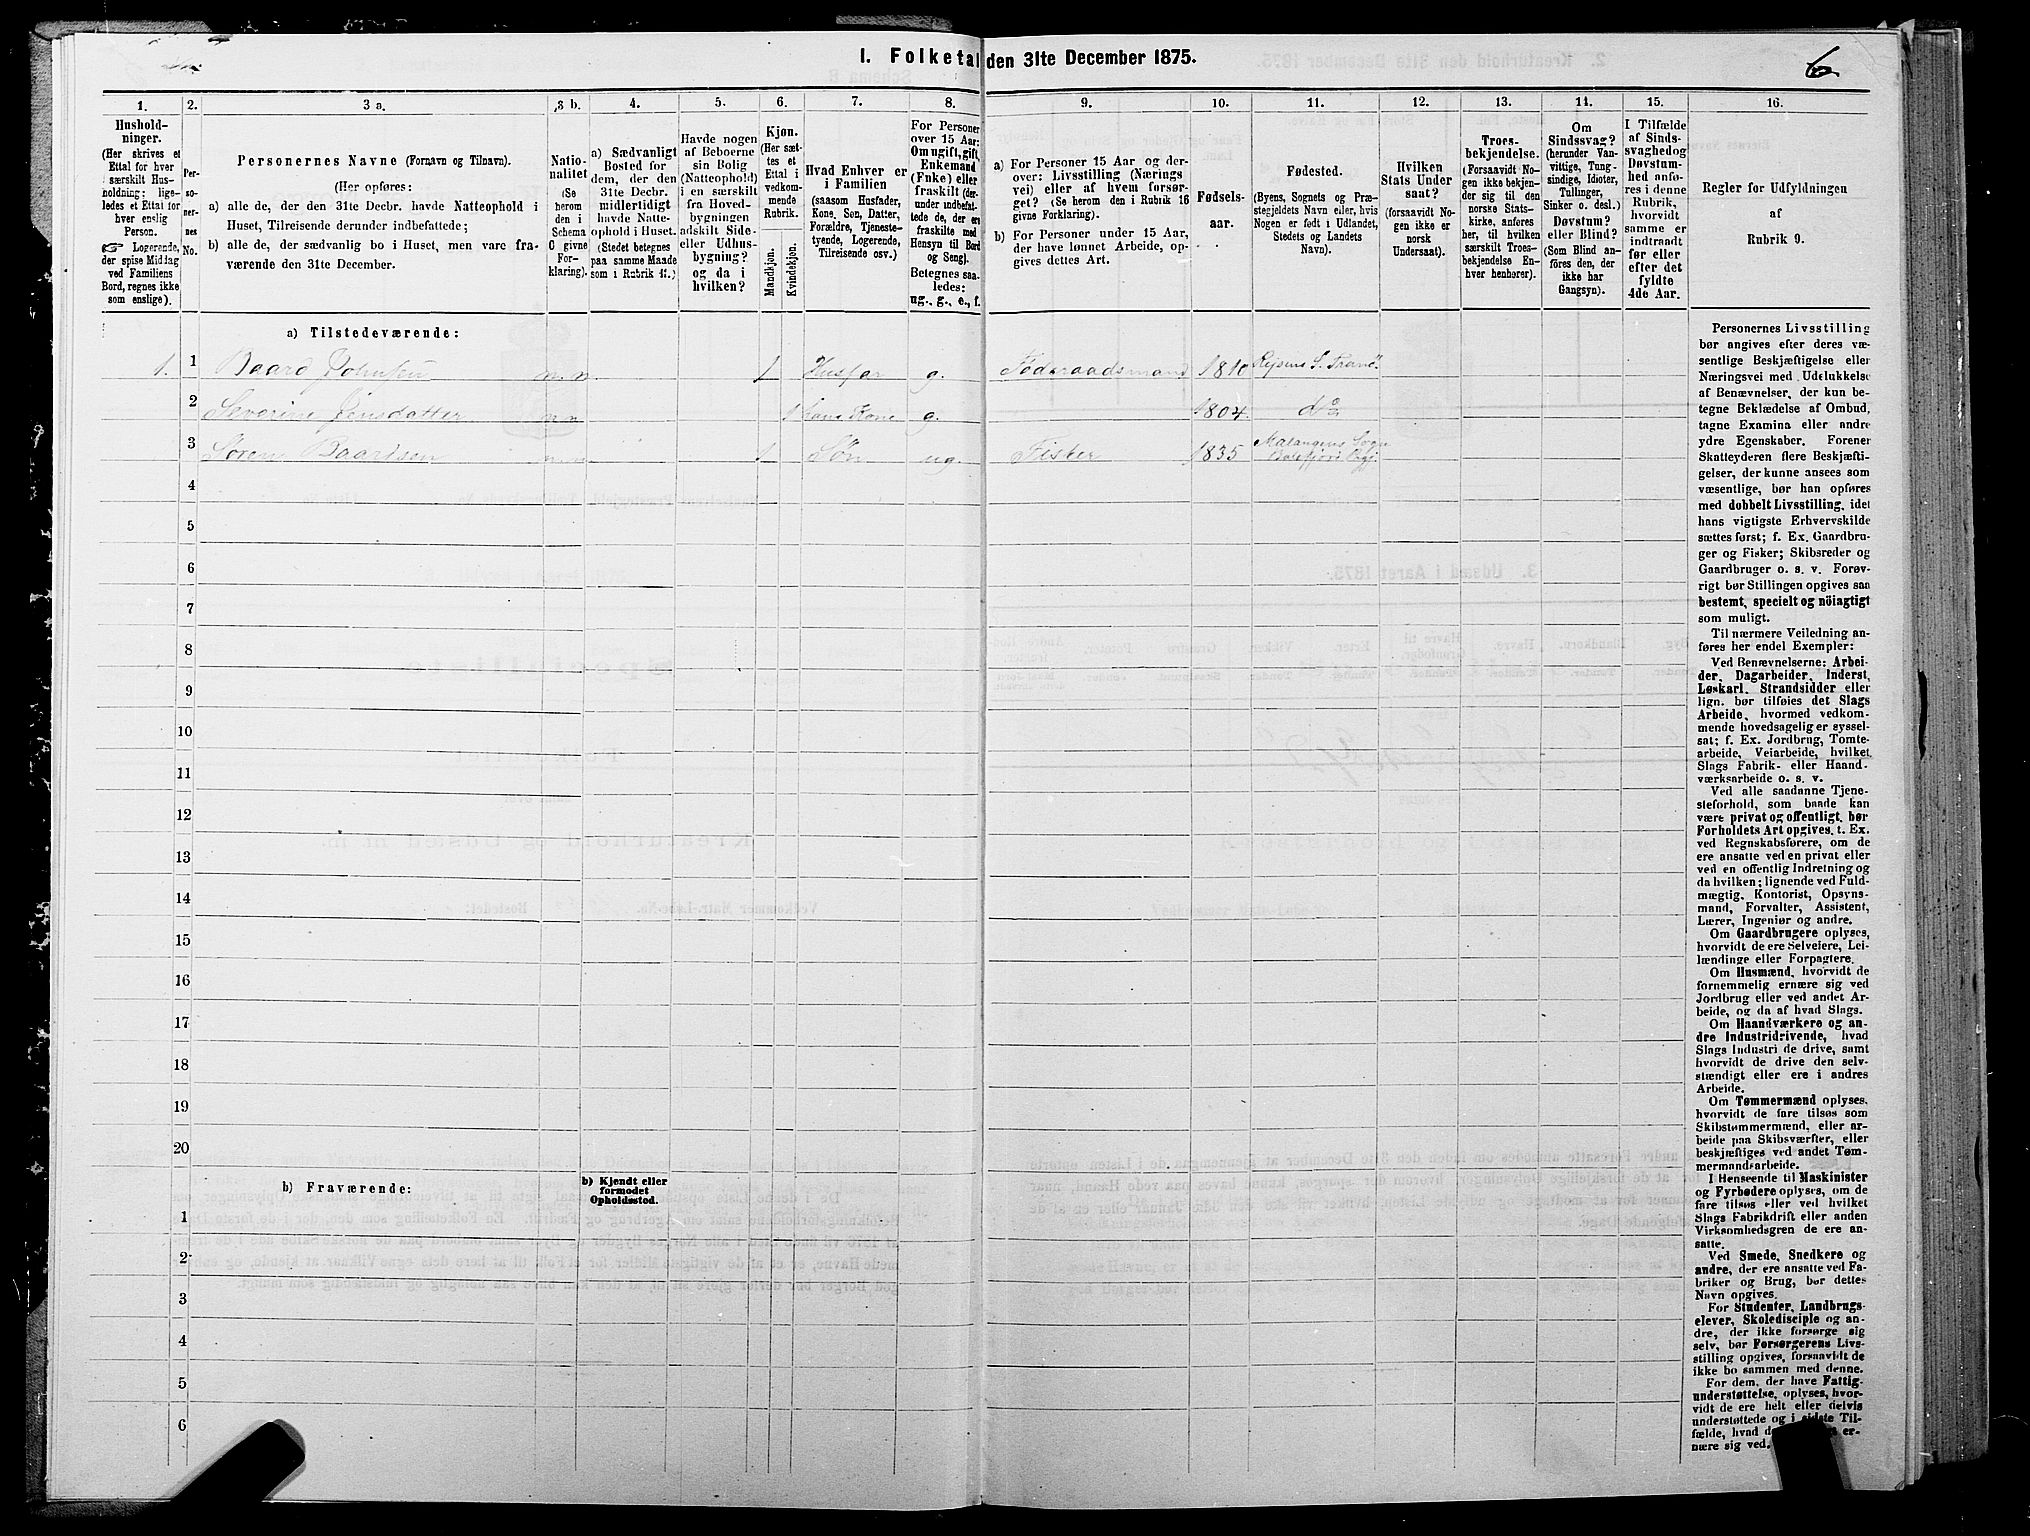 I. Folketal den 31te December 1875.
6
1.
2.
3 a.
3 b.
4.
5.
6.
7.
8.
9.
10.
11.
12.
13.
14.
15.
16.
Hushold-
ninger.
(Her skrives et
Ettal for hver
særskilt Hus-
holdning; lige-
ledes et Ettal for
hver enslig
Person.
☞ Logerende,
der spise Middag
ved Familiens
Bord, regnes ikke
som enslige).
Per-
so-
ner-
nes
No.
Personernes Navne (Fornavn og Tilnavn).
(Her opføres:
a) alle de, der den 31te Decbr. havde Natteophold i
Huset, Tilreisende derunder indbefattede;
b) alle de, der sædvanlig bo i Huset, men vare fra-
værende den 31te December.
Natio-
nalitet
(Se
herom
den i
Schema
C givne
For-
klaring).
a) Sædvanligt
Bosted for
dem, der den
31te Decbr.
midlertidigt
havde Natte-
ophold i Huset.
(Stedet betegnes
paa samme Maade
som i Rubrik 11.)
Havde nogen
af Beboerne
sin Bolig
(Natteophold)
i en særskilt
fra Hoved-
bygningen
adskilt Side-
eller Udhus-
bygning?
og da i
hvilken?
Kjøn.
(Her sæt-
tes et
Ettal i
vedkom-
mende
Rubrik.
Mandkjøn.
Kvindekjøn.
Hvad Enhver er
i Familien
(saasom Husfader,
Kone, Søn, Datter,
Forældre, Tjeneste-
tyende, Logerende,
Tilreisende osv.)
For Personer
over 15 Aar:
Om ugift, gift,
Enkemand
(Enke) eller
fraskilt (der-
under indbefat-
tede de, der ere
fraskilte med
Hensyn til Bord
og Seng).
Betegnes saa-
ledes:
ug., g., e., f.
a) For Personer 15 Aar og der-
over: Livsstilling (Nærings
vei) eller af hvem forsør-
get? (Se herom den i Rubrik 16
givne Forklaring).
b) For Personer under 15 Aar,
der have lønnet Arbeide, op-
gives dettes Art.
Fødsels-
aar.
Fødested.
(Byens, Sognets og Præ-
stegjeldets Navn eller, hvis
Nogen er født i Udlandet,
Stedets og Landets
Navn).
Hvilken
Stats Under
saat?
(forsaavidt No-
gen ikke er
norsk
Undersaat).
Troes-
bekjendelse.
(Forsaavidt No-
gen ikke bekjen-
der sig til den
norske Stats-
kirke, anføres
her, til hvilken
særskilt Troes-
bekjendelse En-
hver henhører).
Om
Sindssvag?
(herunder Van-
vittige, Tung-
sindige, Idioter,
Tullinger,
Sinker o. desl.)
Døvstum?
eller Blind?
(Som Blind an-
føres den, der
ikke har
Gangsyn).
I Tilfælde
af Sinds-
svaghed og
Døvstum-
hed anfø-
res i denne
Rubrik,
hvorvidt
samme er
indtraadt
før eller
efter det
fyldte
4de Aar.
Regler for Udfyldningen
af
Rubrik 9.
a) Tilstedeværende:
1. 1 Baard Johnsen n. n. 1 Husfar g. Føderaadsmand 1810 Rejsens S. Tranö
2 Severine Jensdatter n n 1 hans Kone g. 1804. do
3 Søren Baardsen n. n. 1 Søn ug. Fisker 1835 Malangens Sogn
Balsfjord Pgj.
4
5
6
7
8
9
10
11
12
13
14
15
16
17
18
19
20
b) Fraværende:
b) Kjendt eller
formodet
Opholdssted.
1
2
3
4
5
6
Personernes Livsstilling
bør angives efter deres væ-
sentlige Beskjæftigelse eller
Næringsvei med Udelukkelse
af Benævnelser, der kun be-
tegne Beklædelse af Ombud,
tagne Examina eller andre
ydre Egenskaber. Forener
Skatteyderen flere Beskjæfti-
gelser, der kunne ansees som
væsentlige, bør han opføres
med dobbelt Livsstilling, idet
hans vigtigste Erhvervskilde
sættes først; f. Ex. Gaardbru-
ger og Fisker; Skibsreder og
Gaardbruger o. s. v. Forøv-
rigt bør Stillingen opgives saa
bestemt, specielt og nöiagtigt
som muligt.
Til nærmere Veiledning an-
føres her endel Exempler:
Ved Benævnelserne: Arbei-
der, Dagarbeider, Inderst,
Løskarl, Strandsidder eller
lign. bør tilføies det Slags
Arbeide, hvormed vedkom-
mende hovedsagelig er syssel-
sat; f. Ex. Jordbrug, Tomte-
arbeide, Veiarbeide, hvilket
Slags Fabrik- eller Haand-
værksarbeide o. s. v.
Ved alle saadanne Tjene-
steforhold, som baade kan
være privat og offentligt, bør
Forholdets Art opgives, t. Ex.
ved Regnskabsførere, om de
ere ansatte ved en privat eller
ved en offentlig Indretning og
da hvilken; lignende ved Fuld-
mægtig, Kontorist, Opsyns-
mand, Forvalter, Assistent,
Lærer, Ingeniør og andre.
Om Gaardbrugere oplyses,
hvorvidt de ere Selveiere, Lei-
lændinge eller Forpagtere.
Om Husmænd, hvorvidt de
fornemmelig ernære sig ved
Jordbrug eller ved andet Ar-
beide, og da af hvad Slags.
Om Haandværkere og an-
dre Industridrivende, hvad
Slags Industri de drive, samt
hvorvidt de drive den selv-
stændigt eller ere i andres
Arbeide.
Om Tømmermænd oplyses,
hvorvidt de fare tilsøs som
Skibstømmermænd, eller ar-
beide paa Skibsværfter, eller
beskjæftiges ved andet Tøm-
mermandsarbeide.
I Henseende til Maskinister
og Fyrbødere oplyses, om de
fare tilsøs eller ved hvilket
Slags Fabrikdrift eller anden
Virksomhedsgren de ere an-
satte.
Ved Smede, Snedkere og
andre, der ere ansatte ved Fa-
briker og Brug, bør dettes
Navn opgives.
For Studenter, Landbrugs-
elever, Skoledisciple og an-
dre, der ikke forsørge sig
selv, bør Forsørgerens Livs-
stilling opgives, forsaavidt de
ikke bo sammen med denne.
For dem, der have Fattig-
understøttelse, oplyses, hvor-
vidt de ere helt eller delvis
understøttede og i sidste Til-
fælde, hvad de er-
nære sig ved.